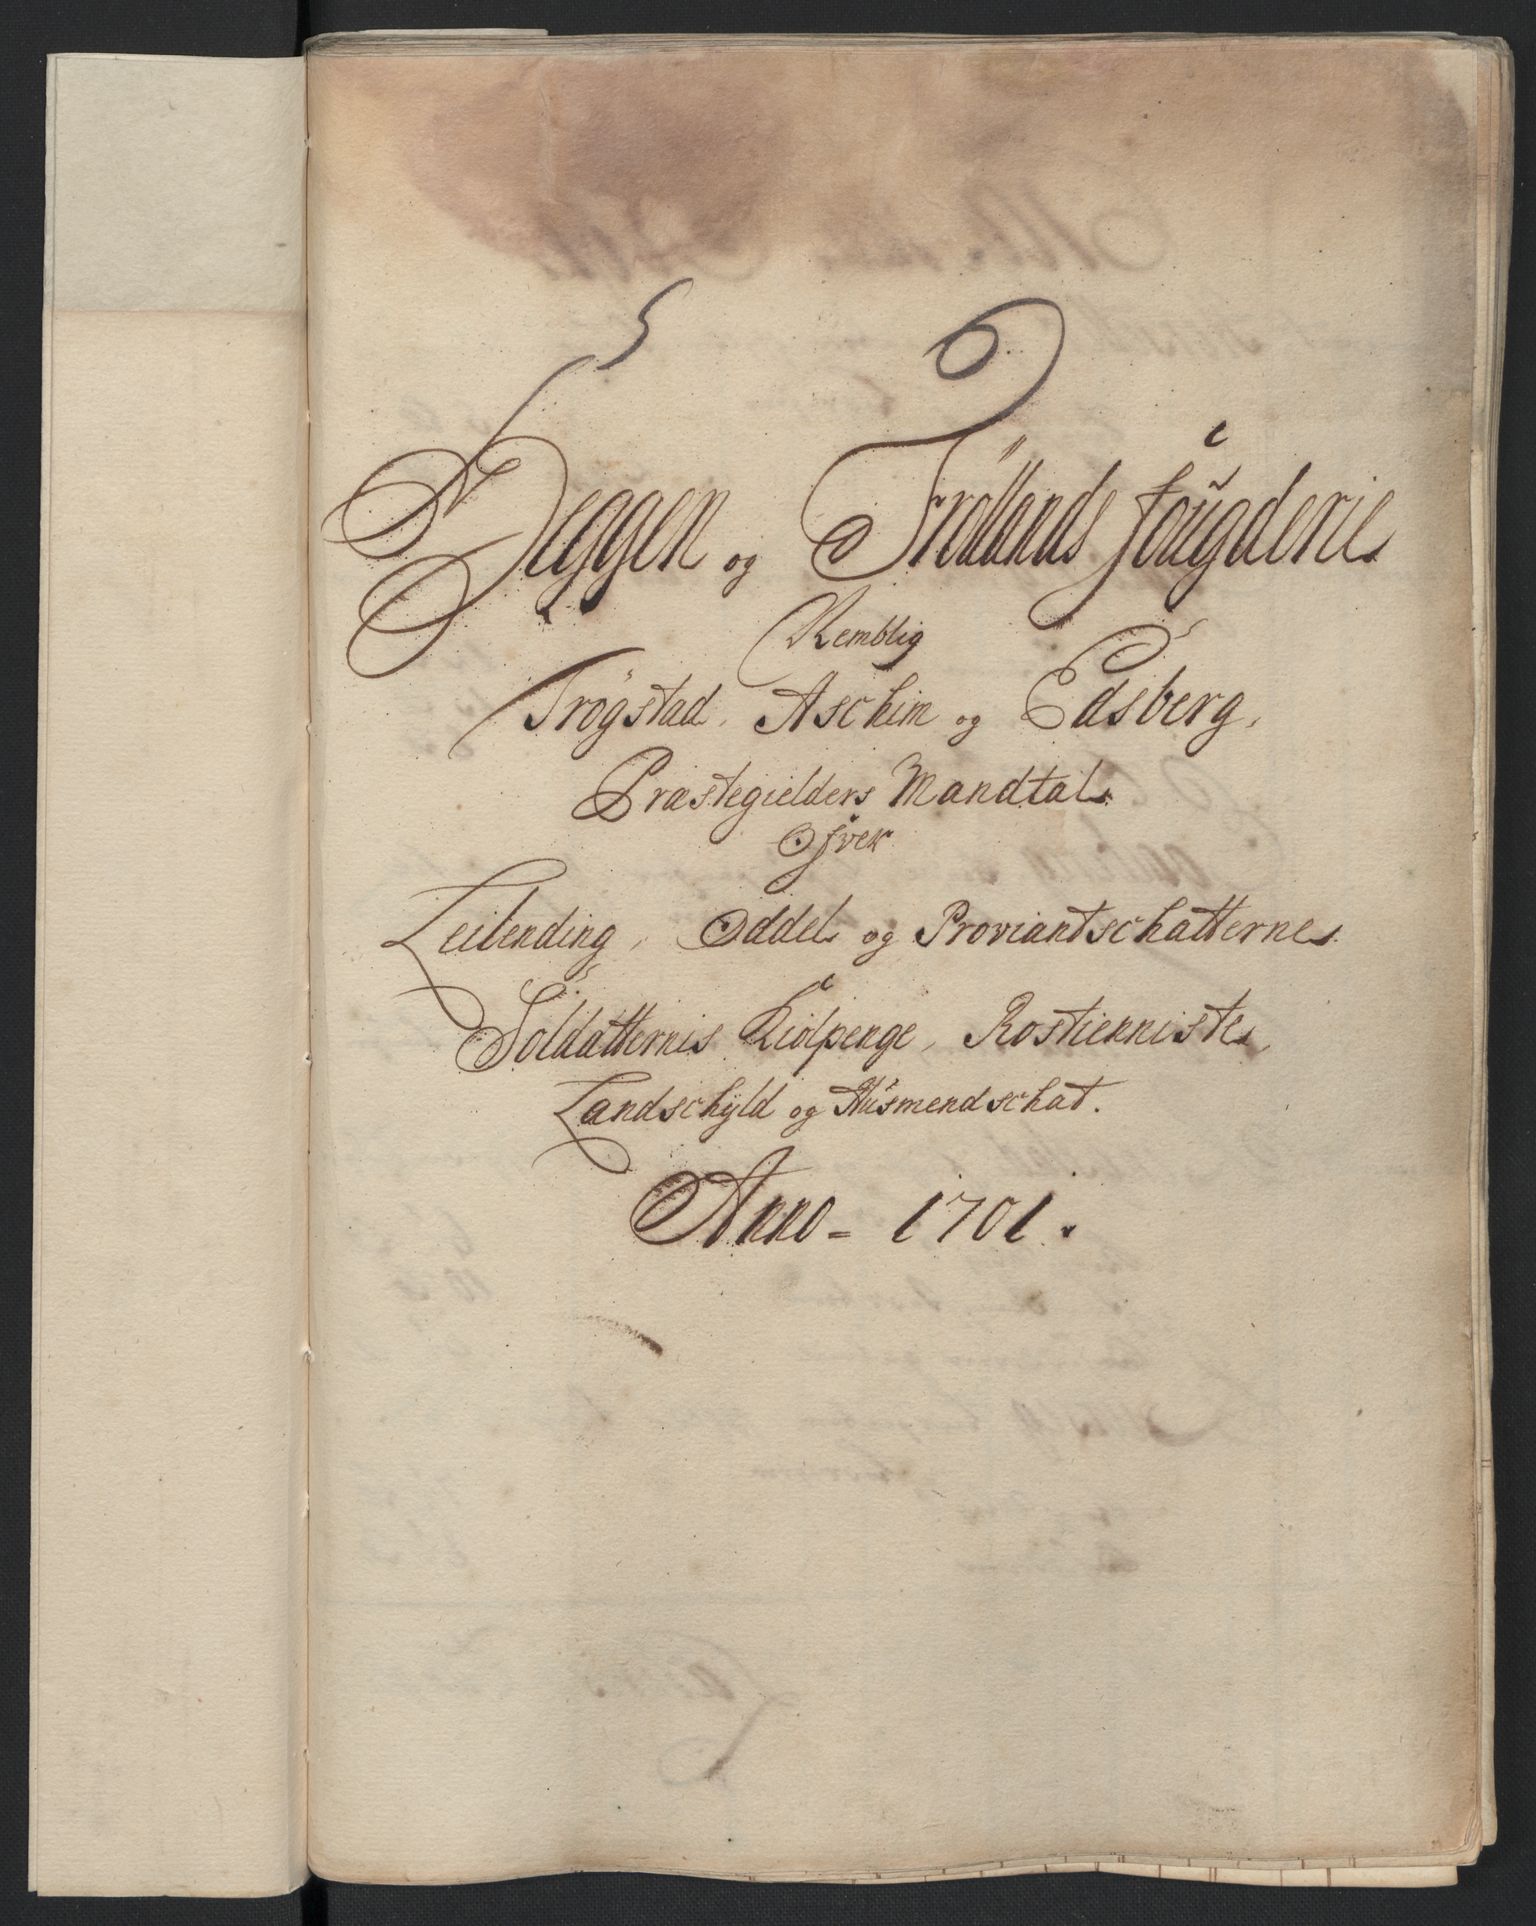 Heggen og Frøllands fougderie
Nemblig
Trøgstad, Aschim og Edsberg,
Præstegielders Mandtal
Ofver
Leilending, Oddel og Proviantschatterne
Soldatternis Kiolpenge, Rostienniste,
Landschyld og Husmendschat.
Anno = 1701.